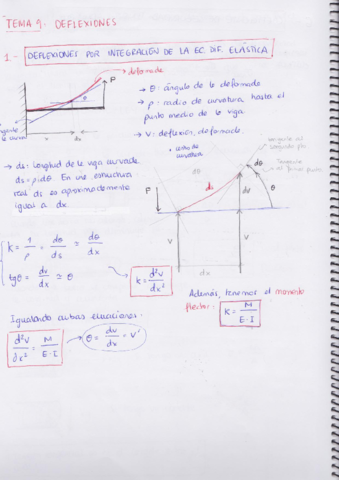 TEMA 9. DEFLEXIONES
1.- DEFLEXIONES POR INTEGRACIÓN DE LA EC. DIF. ELÁSTICA
deformada
P
θ
x
dx
→ θ: ángulo de la deformada
→ ρ: radio de curvatura, hasta el
punto medio de la viga.
→ V: deflexión, deformada.
→ ds: longitud de la viga curvada.
ds = ρ·dθ. En una estructura
real ds es aproximadamente
igual a dx.
centro de
curvatura
dθ
P
ds
dθ
dv
θ
V
V
dx
K = 1/ρ = dθ/ds ≅ dθ/dx
tgθ = dv/dx ≅ θ
K = d²V/dx²
Además, tenemos el momento
flector:
K = M/E·I
Igualando ambas ecuaciones:
d²V/dx² = M/E·I
θ = dv/dx = V'